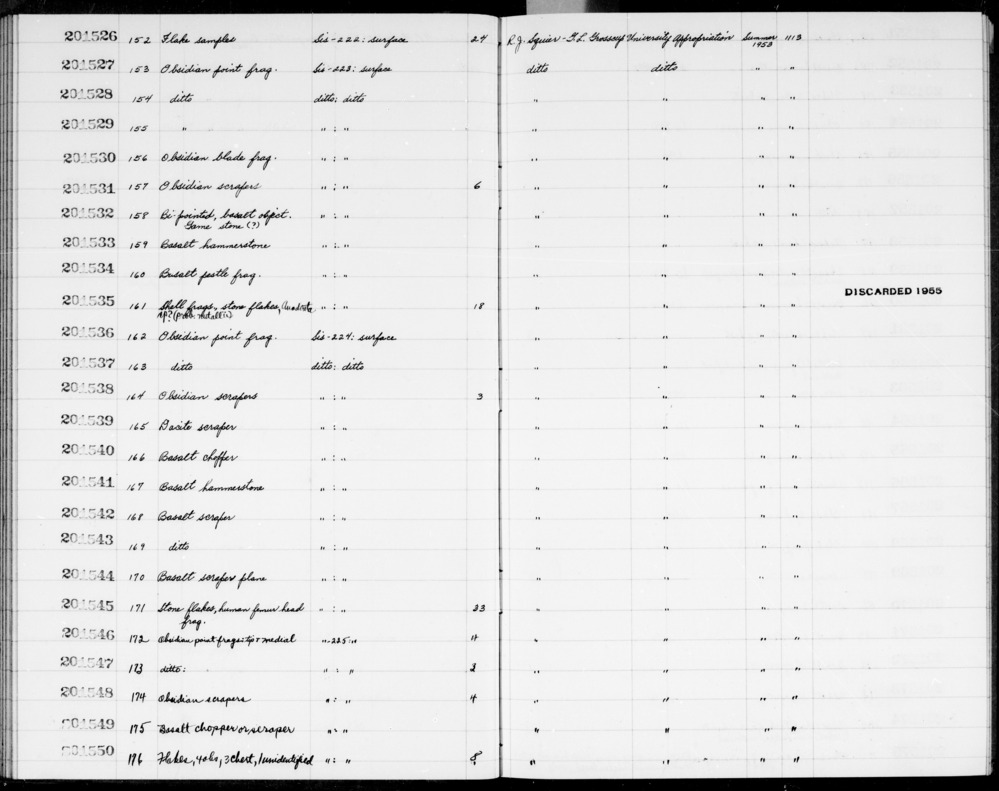 201526 152 Flake samples Sis-222: surface 24 R.J. Squier - G.L. Grossup University Appropriation Summer 1953 1113
201527 153 Obsidian point frag. Sis-223: surface ditto ditto " "
201528 154 ditto ditto: ditto " " " "
201529 155 " " : " " " " "
201530 156 Obsidian blade frag. " : " " " " "
201531 157 Obsidian scrapers " : " 6 " " " "
201532 158 Bi-pointed, basalt object. " : " " " " "
Game stone (?)
201533 159 Basalt hammerstone " : " " " " "
201534 160 Basalt pestle frag. " : " " " " "
201535 161 Shell frags, stone flakes, " : " 18 " " " " DISCARDED 1955
201536 162 Obsidian point frag. Sis-224: surface " " " "
201537 163 ditto ditto: ditto " " " "
201538 164 Obsidian scrapers " : " 3 " " " "
201539 165 Dacite scraper " : " " " " "
201540 166 Basalt chopper " : " " " " "
201541 167 Basalt hammerstone " : " " " " "
201542 168 Basalt scraper " : " " " " "
201543 169 ditto " : " " " " "
201544 170 Basalt scraper plane " : " " " " "
201545 171 Stone flakes, human femur head " : " 23 " " " "
frag.
201546 172 Obsidian point frags: tip + medial "-225: " 4 " " " "
201547 173 ditto: " : " 2 " " " "
201548 174 Obsidian scrapers " : " 4 " " " "
201549 175 Basalt chopper or scraper " : " " " " "
201550 176 Flakes, 4 obs, 3 chert, 1 unidentified " : " 8 " " " "